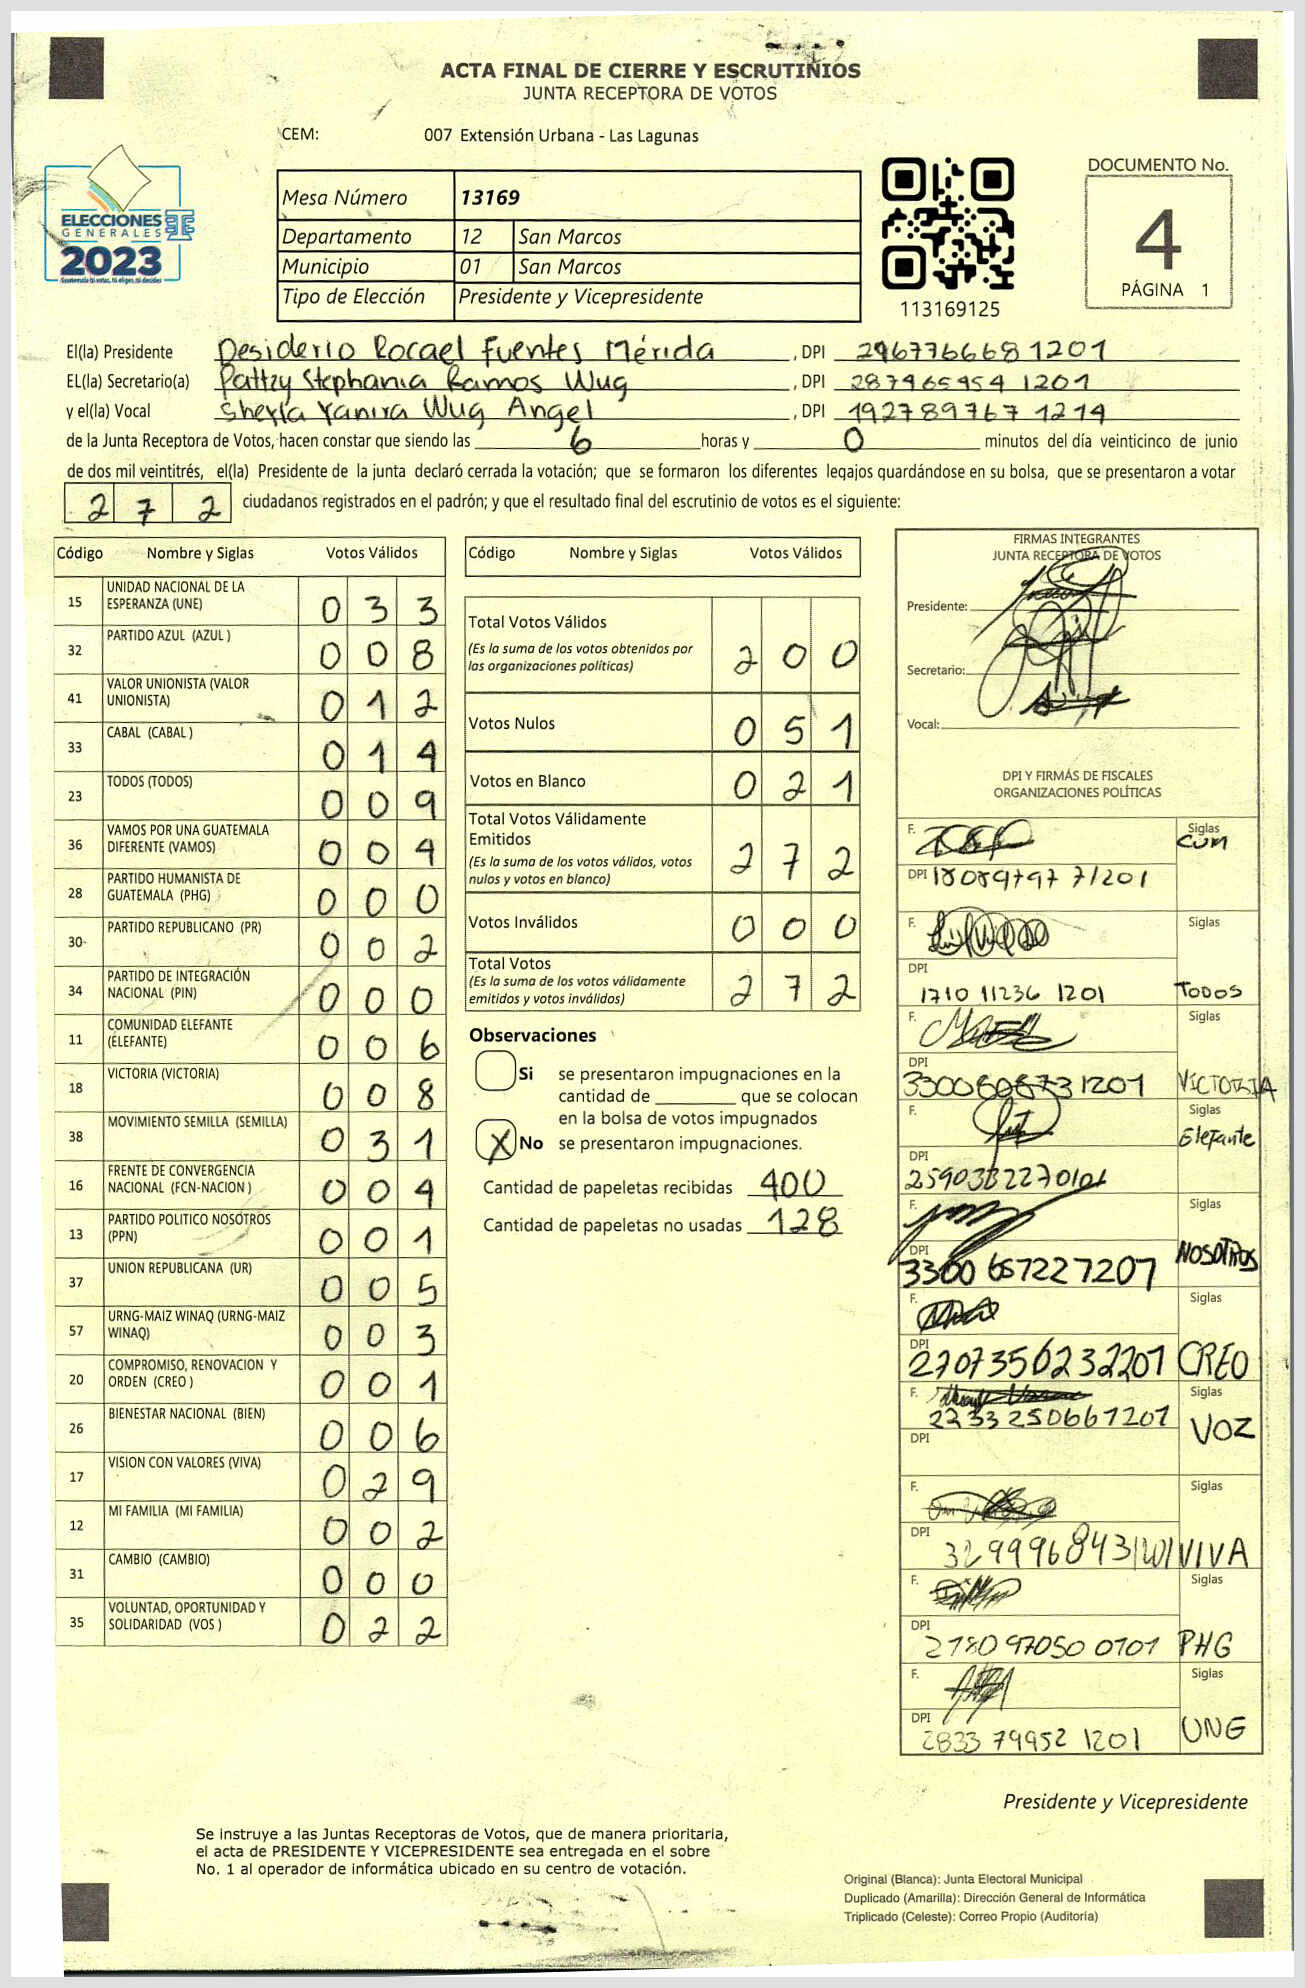 ACTA FINAL DE CIERRE Y ESCRUTINIOS
JUNTA RECEPTORA DE VOTOS
CEM: 007 Extensión Urbana - Las Lagunas
ELECCIONES
GENERALES
2023
Mesa Número 13169
Departamento 12 San Marcos
Municipio 01 San Marcos
Tipo de Elección Presidente y Vicepresidente
113169125
DOCUMENTO No.
4
PÁGINA 1
El(la) Presidente Desiderio Rocael Fuentes Mérida, DPI 2967766681201
EL(la) Secretario(a) Pattzy Stephania Ramos Wug, DPI 287965954 1201
y el(la) Vocal Sheyla Yanira Wug Angel, DPI 192789767 1214
de la Junta Receptora de Votos, hacen constar que siendo las 6 horas y 0 minutos del día veinticinco de junio
de dos mil veintitrés, el(la) Presidente de la junta declaró cerrada la votación; que se formaron los diferentes legajos quardándose en su bolsa, que se presentaron a votar
2 7 2 ciudadanos registrados en el padrón; y que el resultado final del escrutinio de votos es el siguiente:
Código Nombre y Siglas Votos Válidos
15 UNIDAD NACIONAL DE LA ESPERANZA (UNE) 0 3 3
32 PARTIDO AZUL (AZUL ) 0 0 8
41 VALOR UNIONISTA (VALOR UNIONISTA) 0 1 2
33 CABAL (CABAL ) 0 1 4
23 TODOS (TODOS) 0 0 9
36 VAMOS POR UNA GUATEMALA DIFERENTE (VAMOS) 0 0 4
28 PARTIDO HUMANISTA DE GUATEMALA (PHG) 0 0 0
30 PARTIDO REPUBLICANO (PR) 0 0 2
34 PARTIDO DE INTEGRACIÓN NACIONAL (PIN) 0 0 0
11 COMUNIDAD ELEFANTE (ELEFANTE) 0 0 6
18 VICTORIA (VICTORIA) 0 0 8
38 MOVIMIENTO SEMILLA (SEMILLA) 0 3 1
16 FRENTE DE CONVERGENCIA NACIONAL (FCN-NACION ) 0 0 4
13 PARTIDO POLITICO NOSOTROS (PPN) 0 0 1
37 UNION REPUBLICANA (UR) 0 0 5
57 URNG-MAIZ WINAQ (URNG-MAIZ WINAQ) 0 0 3
20 COMPROMISO, RENOVACION Y ORDEN (CREO ) 0 0 1
26 BIENESTAR NACIONAL (BIEN) 0 0 6
17 VISION CON VALORES (VIVA) 0 2 9
12 MI FAMILIA (MI FAMILIA) 0 0 2
31 CAMBIO (CAMBIO) 0 0 0
35 VOLUNTAD, OPORTUNIDAD Y SOLIDARIDAD (VOS ) 0 2 2
Código Nombre y Siglas Votos Válidos
Total Votos Válidos 2 0 0
(Es la suma de los votos obtenidos por
las organizaciones políticas)
Votos Nulos 0 5 1
Votos en Blanco 0 2 1
Total Votos Válidamente
Emitidos 2 7 2
(Es la suma de los votos válidos, votos
nulos y votos en blanco)
Votos Inválidos 0 0 0
Total Votos 2 7 2
(Es la suma de los votos válidamente
emitidos y votos inválidos)
Observaciones
Si se presentaron impugnaciones en la
cantidad de ________ que se colocan
en la bolsa de votos impugnados
X No se presentaron impugnaciones.
Cantidad de papeletas recibidas 400
Cantidad de papeletas no usadas 128
FIRMAS INTEGRANTES
JUNTA RECEPTORA DE VOTOS
Presidente:
Secretario:
Vocal:
DPI Y FIRMÁS DE FISCALES
ORGANIZACIONES POLÍTICAS
F. Siglas
DPI 18089797 71201
F. Siglas
DPI
1710 11236 1201 TODOS
F. Siglas
DPI
3300808731201 VICTORIA
F. Siglas
Elefante
DPI
2590332270101
F. Siglas
NOSOTROS
DPI
3300 657227207
F. Siglas
DPI
2707356232201 CREO
F. Siglas
2233250661201 VOZ
DPI
F. Siglas
DPI
32999968431201 VIVA
F. Siglas
DPI
2780 97050 0101 PHG
F. Siglas
DPI
2833 79952 1201 UNE
Presidente y Vicepresidente
Se instruye a las Juntas Receptoras de Votos, que de manera prioritaria,
el acta de PRESIDENTE Y VICEPRESIDENTE sea entregada en el sobre
No. 1 al operador de informática ubicado en su centro de votación.
Original (Blanca): Junta Electoral Municipal
Duplicado (Amarilla): Dirección General de Informática
Triplicado (Celeste): Correo Propio (Auditoría)